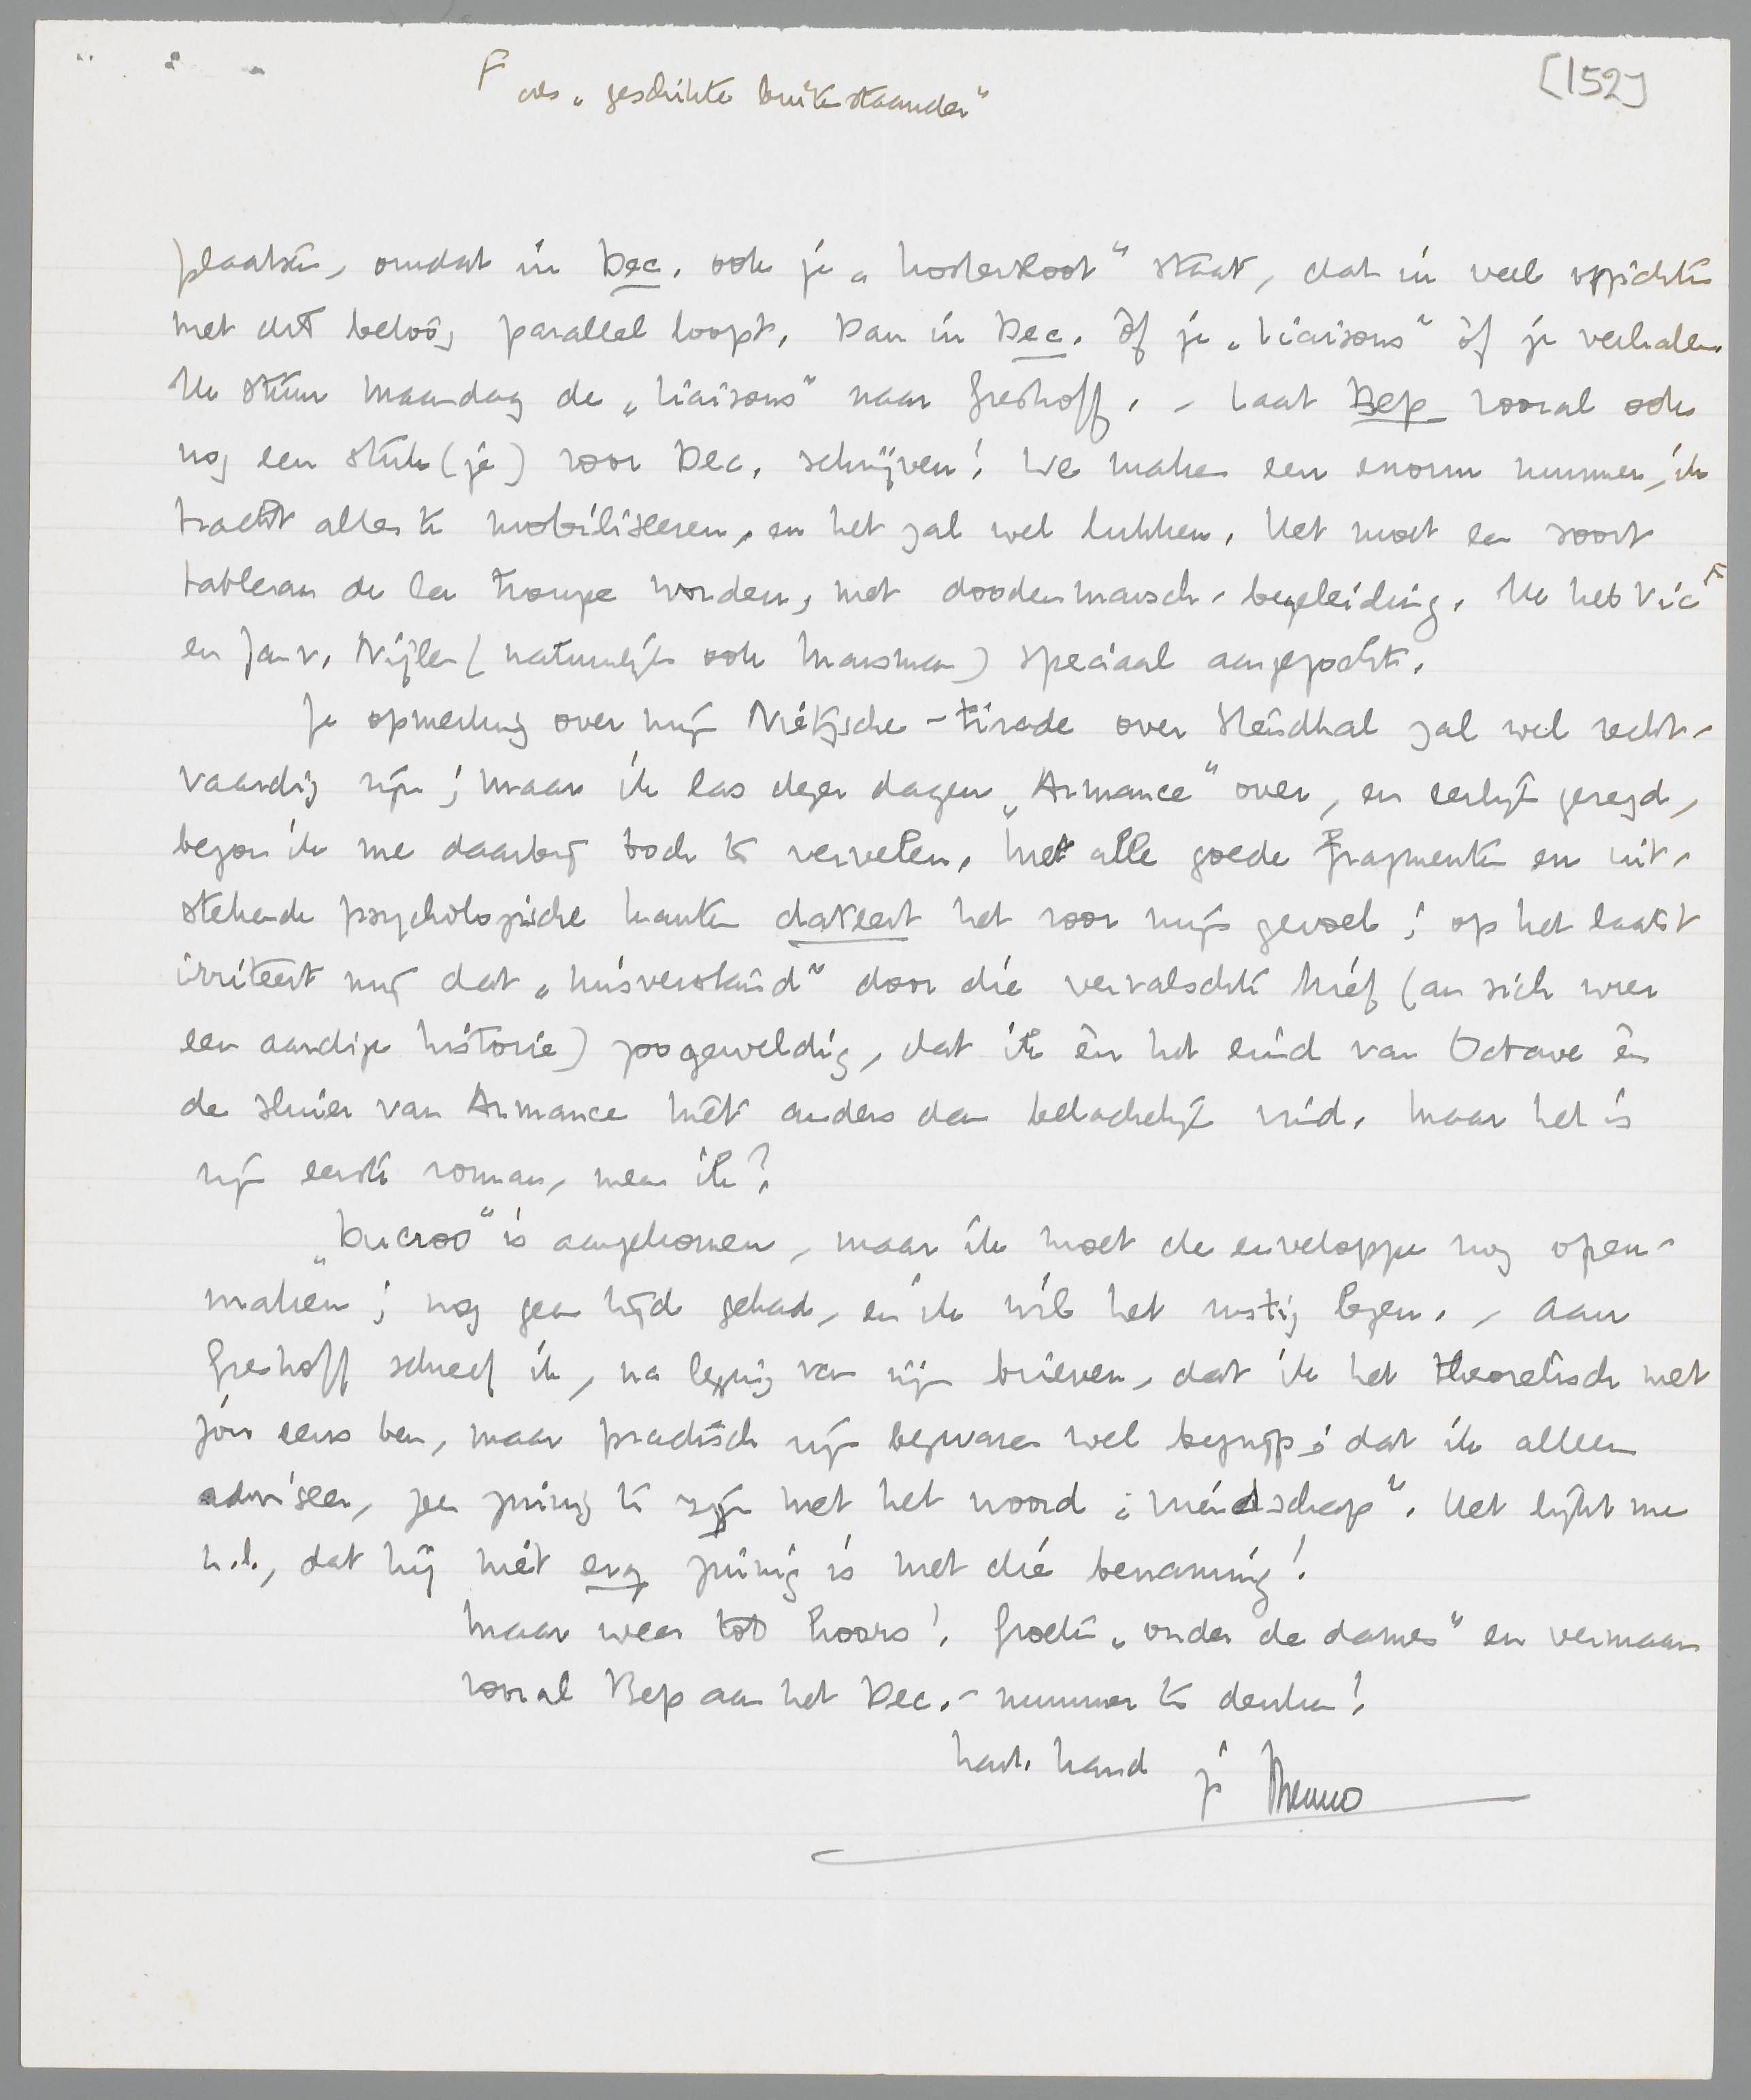 F als „geschikte buitenstaander"
[152]
plaatsen, omdat in Dec. ook je „ staat, dat in veel opzichten
met dit betoog parallel loopt. Dan in Dec. òf je „Liaisons" òf je verhalen.
Ik stuur Maandag de „Liaisons" naar Greshoff. - Laat Bep vooral ook
nog een stuk(je) voor Dec. schrijven! We maken een enorm nummer, ik
tracht alles te mobiliseeren, en het zal wel lukken. Het moet een soort
tableau de la troupe worden, met doodenmarsch-begeleiding. Ik heb Vic F
en Jan v. Nijlen (natuurlijk ook Marsman) speciaal aangezocht.
Je opmerking over mijn Nietzsche-tirade over Stendhal zal wel recht-
vaardig zijn; maar ik las dezer dagen „Armance" over, en eerlijk gezegd,
begon ik me daarbij toch te vervelen. Met alle goede fragmenten en uit-
stekende psychologische kanten dateert het voor mijn gevoel; op het laatst
irriteert mij dat „misverstand" door die vervalschte brief (an sich weer
een aardige historie) zoo geweldig, dat ik èn het eind van Octave èn
de sluier van Armance niet anders dan belachelijk vind. Maar het is
zijn eerste roman, meen ik?
„Ducroo" is aangekomen, maar ik moet de enveloppe nog open-
maken; nog geen tijd gehad, en ik wil het rustig lezen. - Aan
Greshoff schreef ik, na lezing van zijn brieven, dat ik het theoretisch met
jou eens ben, maar practisch zijn bezwaren wel begrijp; dat ik alleen
adviseer, zeer zuinig te zijn met het woord „vriendschap". Het lijkt me
n.l., dat hij niet erg zuinig is met die benaming!
Maar weer tot hoors! Groeten „onder de dames" en vermaan
vooral Bep aan het Dec.-nummer te denken!
hart. hand je Menno